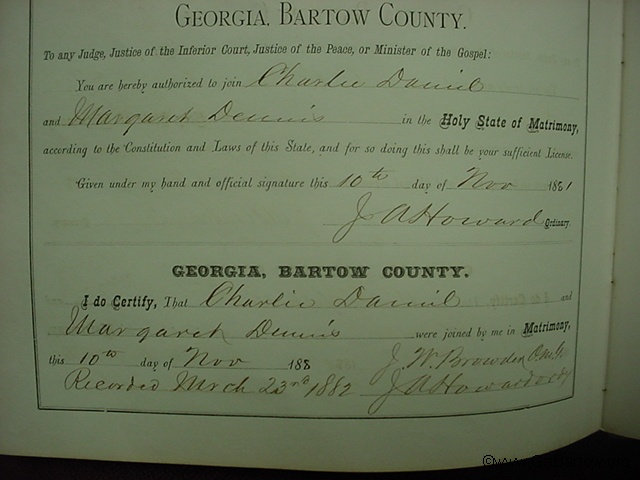 GEORGIA, BARTOW COUNTY.
To any Judge, Justice of the Inferior Court, Justice of the Peace, or Minister of the Gospel:
You are hereby authorized to join Charlie Daniel
and Margaret Dennis in the Holy State of Matrimony,
according to the Constitution and Laws of this State, and for so doing this shall be your sufficient License.
Given under my hand and official signature this 10th day of Nov 1881
J A Howard Ordinary.
GEORGIA, BARTOW COUNTY.
I do Certify, That Charlie Daniel and
Margaret Dennis were joined by me in Matrimony,
this 10th day of Nov 188 J. W. Browden
Recorded Mrch 23rd 1882 J A Howard ordy